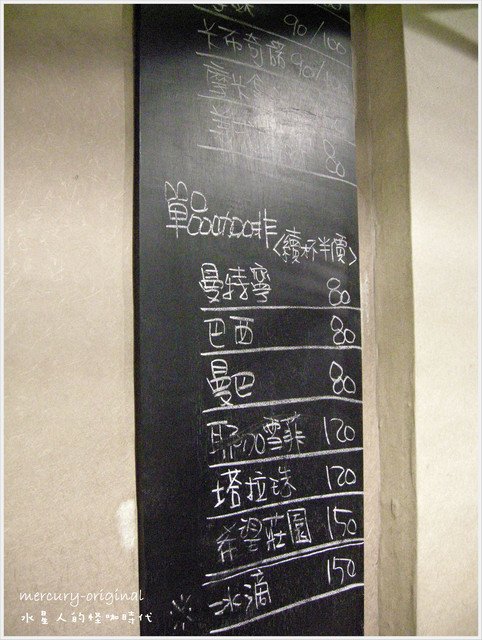 90/100
卡布奇諾 90/100
80
單品咖啡
<續杯半價>
曼特寧 80
巴西 80
曼巴 80
耶加雪菲 120
塔拉珠 120
希望莊園 150
※冰滴 150
mercury-original
水星人的怪咖時代